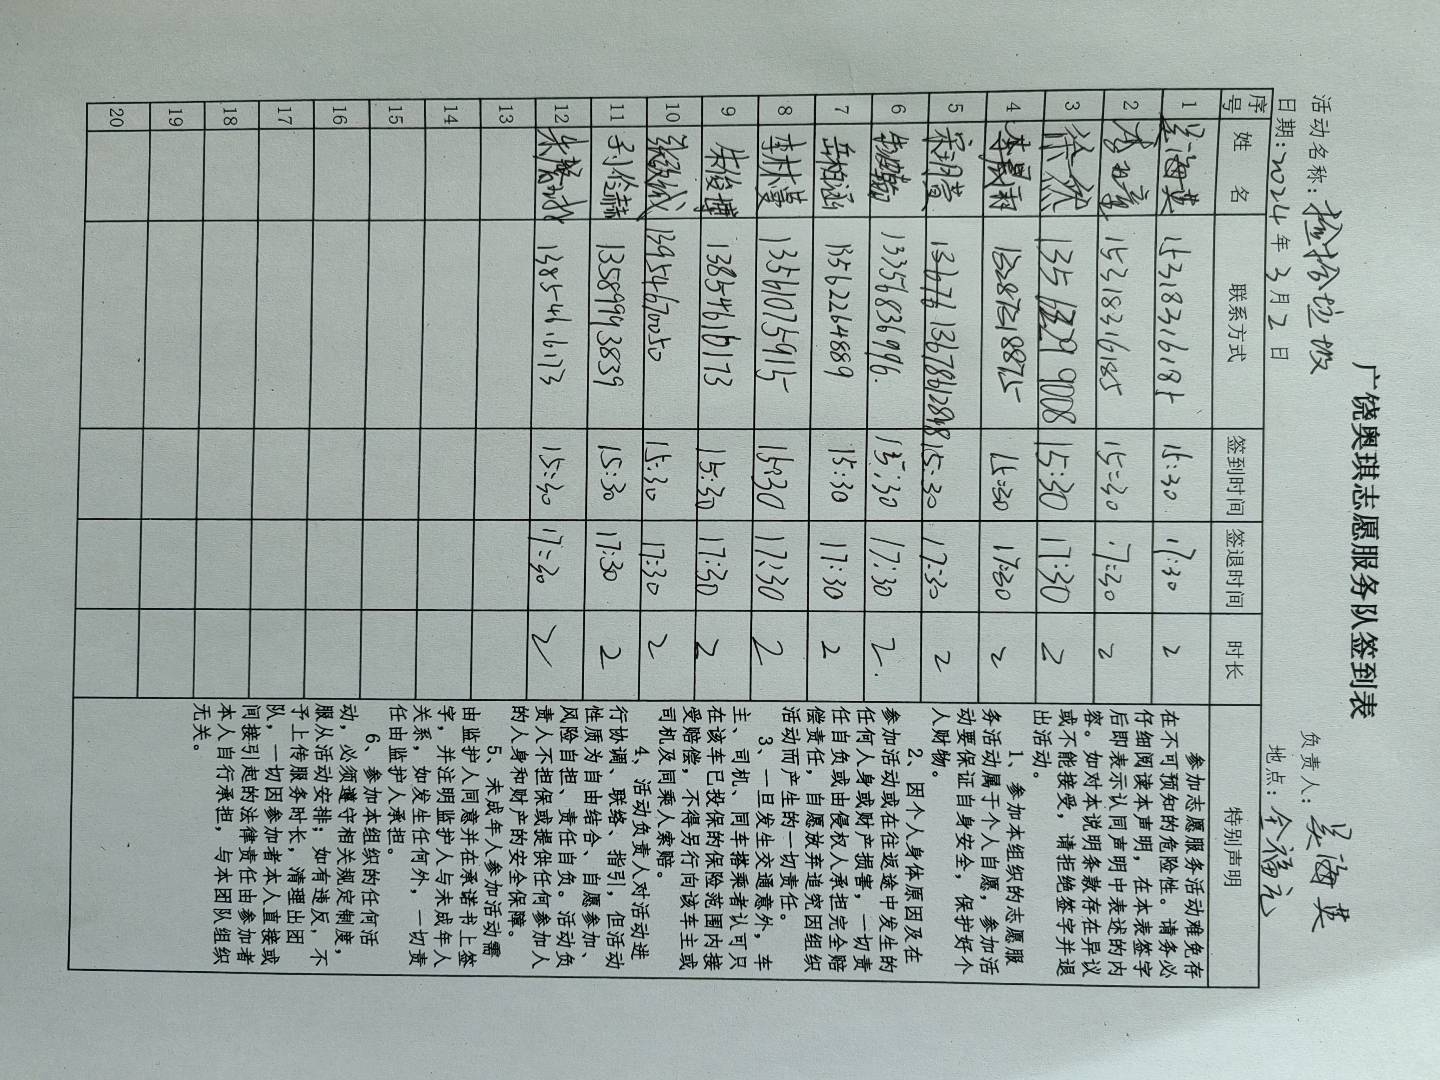 广饶奥琪志愿服务队签到表
活动名称：捡拾垃圾 负责人：吴海英
日期：2024年3月2日 地点：全福元
序号 姓名 联系方式 签到时间 签退时间 时长 特别声明
1 吴海英 15:30 17:30 2
2 15318316185 15:30 17:30 2
3 徐然 15:30 17:30 2
4 李晨雨 15:30 17:30 2
5 宋玥萱 15:30 17:30 2
6 13356836996. 15:30 17:30 2.
7 岳柏涵 13562264889 15:30 17:30 2
8 李林蔓 13561075915 15:30 17:30 2
9 朱俊博 15:30 17:30 2
10 张欧城 13954670050 15:30 17:30 2
11 13589943839 15:30 17:30 2
12 13854616173 15:30 17:30 2
13
14
15
16
17
18
19
20
参加志愿服务活动难免存
在不可预知的危险性。请务必
仔细阅读本声明，在本表签字
后即表示认同声明中表述的内
容。如对本说明条款存在异议
或不能接受，请拒绝签字并退
出活动。
1、参加本组织的志愿服
务活动属于个人自愿，参加活
动要保证自身安全，保护好个
人财物。
2、因个人身体原因及在
参加活动或在往返途中发生的
任何人身或财产损害，一切责
任自负或由侵权人承担完全赔
偿责任，自愿放弃追究因组织
活动而产生的一切责任。
3、一旦发生交通意外，车
主、司机、同车搭乘者认可只
在该车已投保的保险范围内接
受赔偿，不得另行向该车主或
司机及同乘人索赔。
4、活动负责人对活动进
行协调、联络、指引，但活动
性质为自由结合、自愿参加、
风险自担、责任自负。活动负
责人不担保或提供任何参加人
的人身和财产的安全保障。
5、未成年人参加活动需
由监护人同意并在承诺书上签
字，并注明监护人与未成年人
关系，如发生任何意外，一切责
任由监护人承担。
6、参加本组织的任何活
动，必须遵守相关规定制度，
服从活动安排；如有违反，不
予上传服务时长，清理出团
队，一切因参加者本人直接或
间接引起的法律责任由参加者
本人自行承担，与本团队组织
无关。